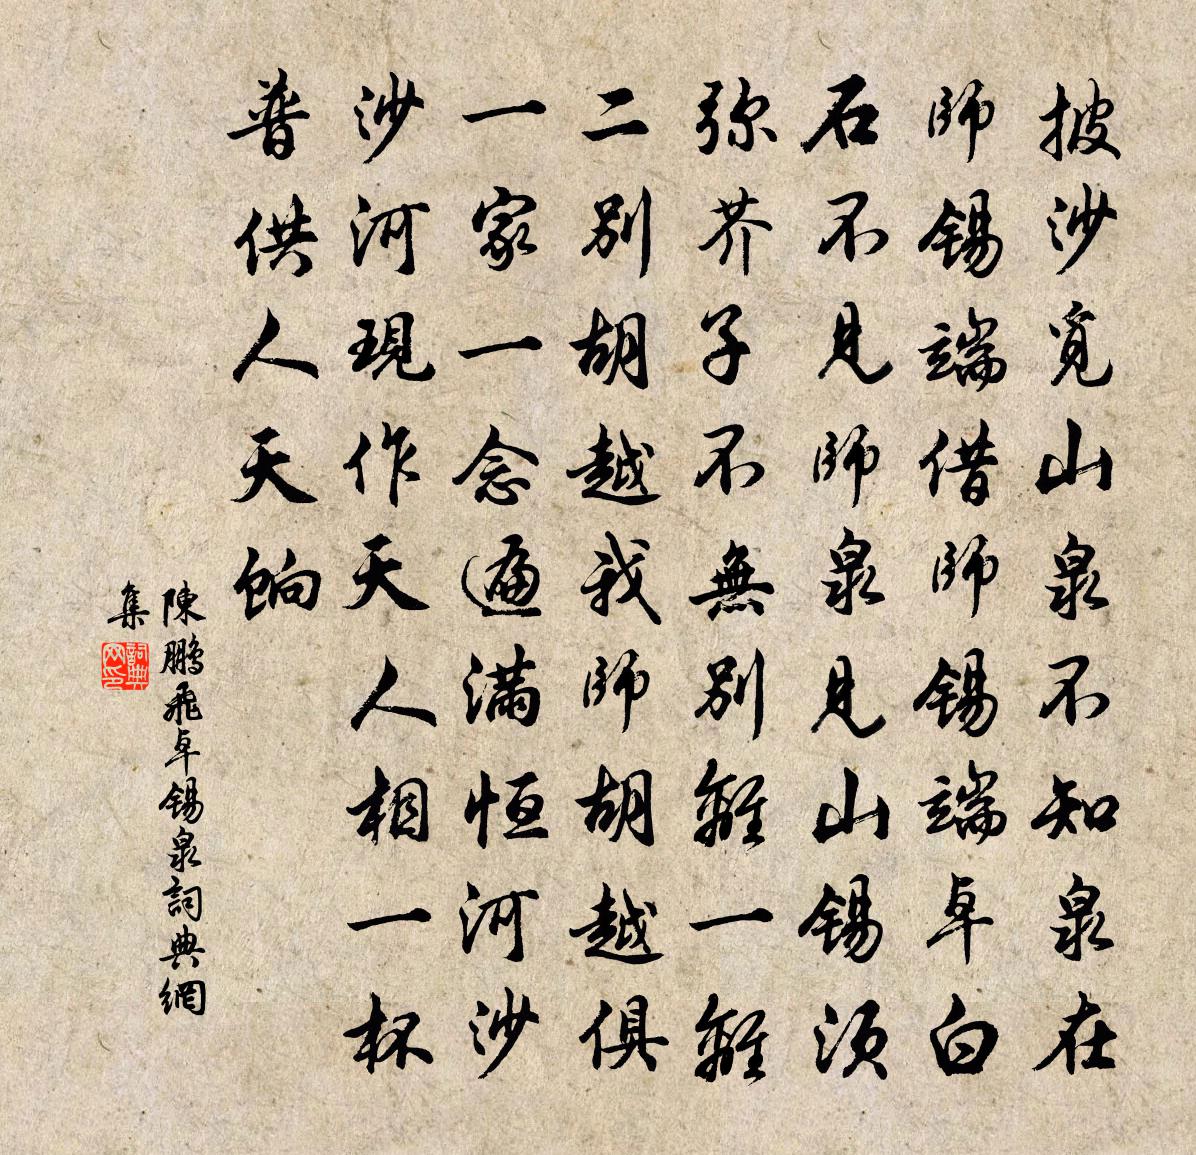 披沙覓山泉不知泉在
師錫端借師錫端卓白
石不見師泉見山錫須
弥芥子不無別離一離
二別胡越我師胡越俱
一家一念遍滿恒河沙
沙河現作天人相一杯
普供人天餉
陳鵬飛卓錫泉詞典網
集
詞典网印